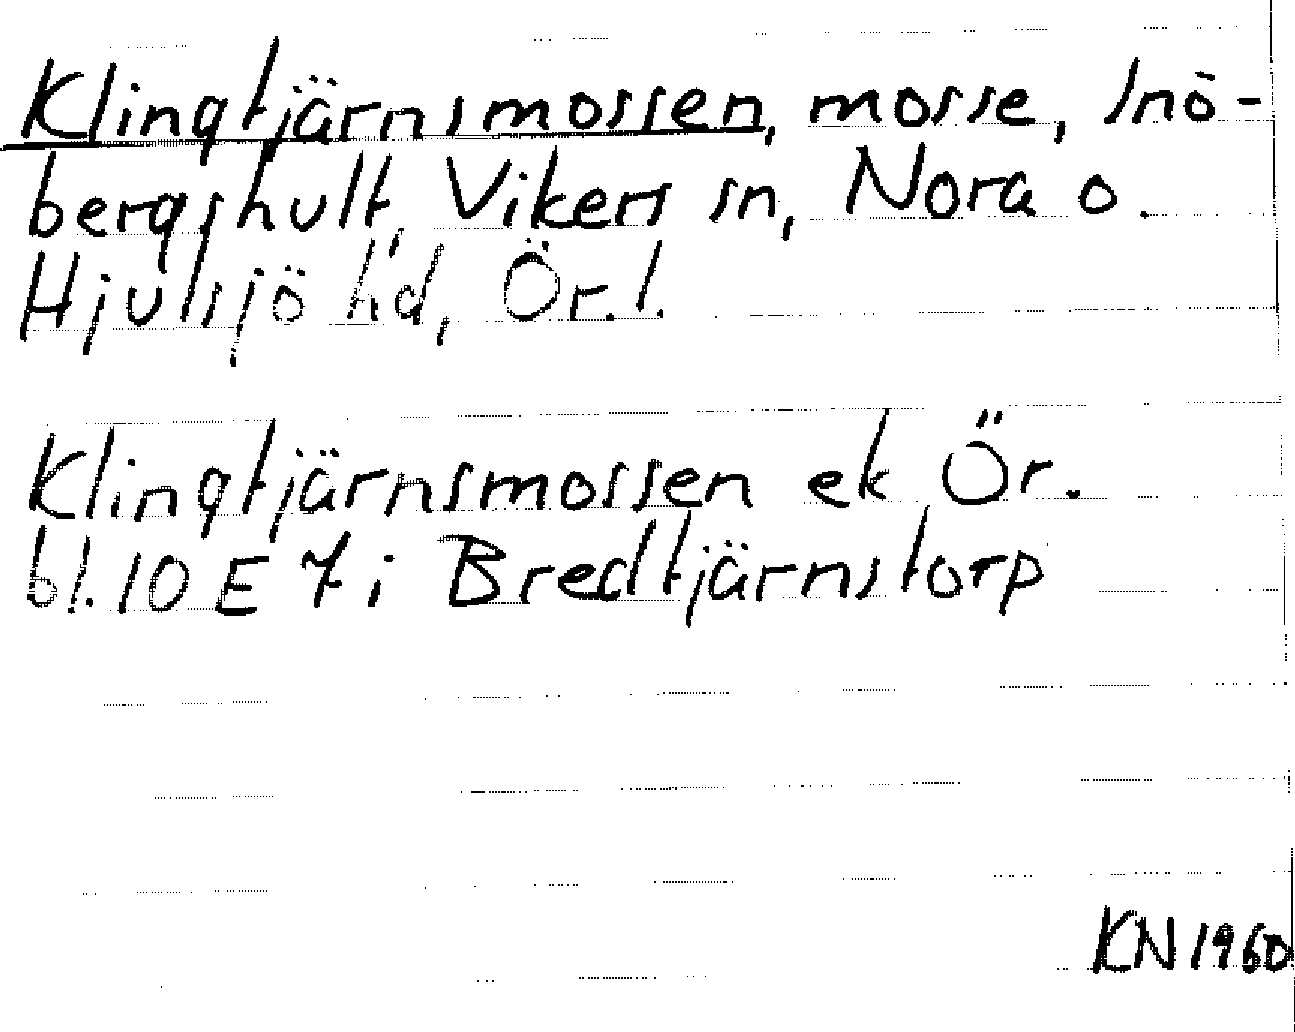 Klingtjärnsmossen, mosse, Snö-
bergshult, Vikers sn, Nora o.
Hjulsjö hd, Ör.l.
Klingtjärnsmossen ek Ör.
bl. 10 E 7 i Bredtjärnstorp
KN 1960